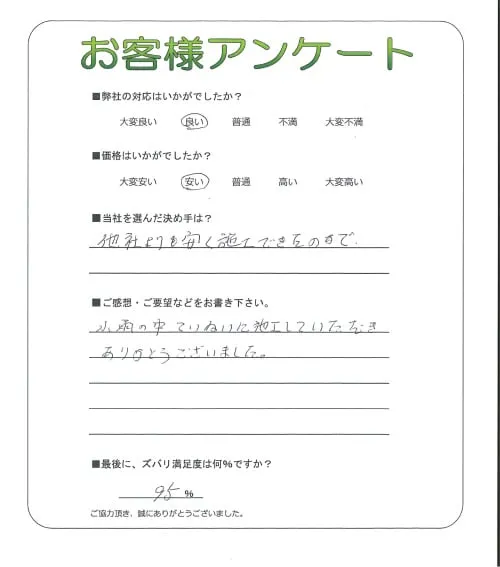 お客様アンケート
■弊社の対応はいかがでしたか？
大変良い 良い 普通 不満 大変不満
■価格はいかがでしたか？
大変安い 安い 普通 高い 大変高い
■当社を選んだ決め手は？
他社よりも安く施工できたので
■ご感想・ご要望などをお書き下さい。
小雨の中ていねいに施工していただき
ありがとうございました。
■最後に、ズバリ満足度は何%ですか？
95 %
ご協力頂き、誠にありがとうございました。